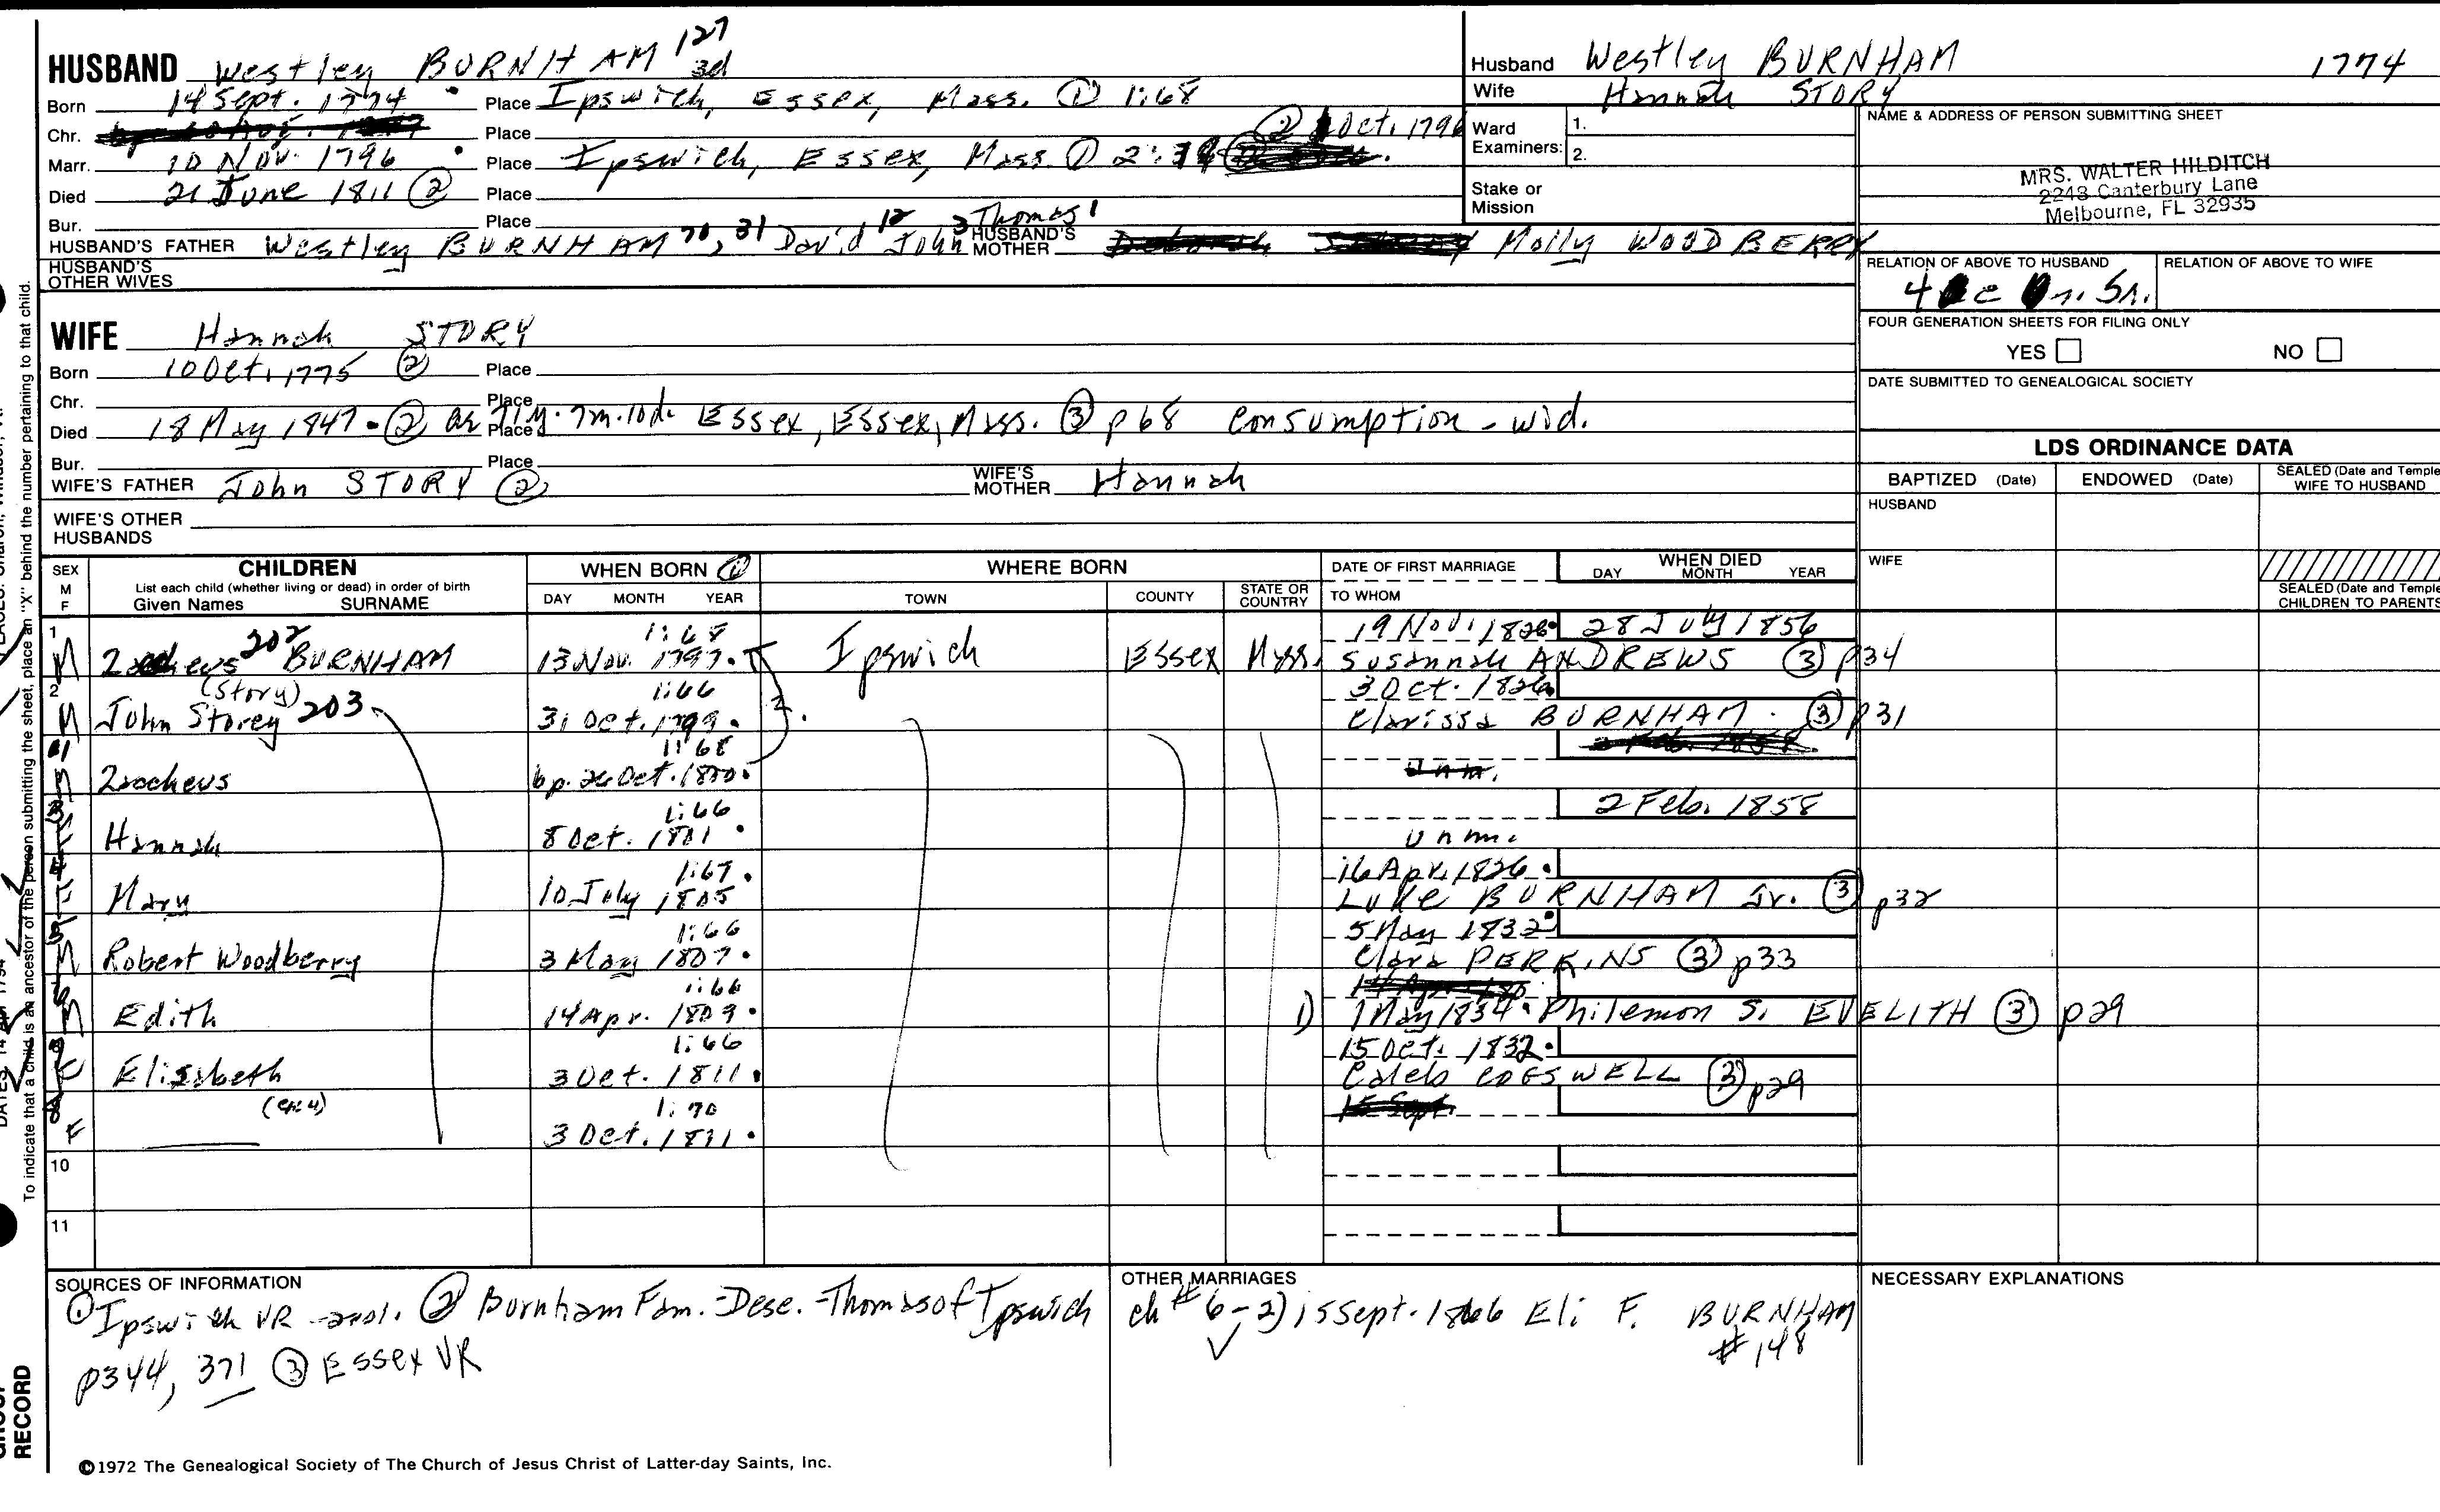 HUSBAND Westley BURNHAM 127 3d
Born 14 Sept. 1774 Place Ipswich, Essex, Mass. ① 1:68
Chr. Place ② Oct. 1796
Marr. 10 Nov. 1796 Place Ipswich, Essex, Mass. ①
Died 21 June 1811 ② Place
Bur. Place
HUSBAND'S FATHER Westley BURNHAM 70, 31 David 12 John 3 Thomas 1 HUSBAND'S MOTHER Molly WOODBERRY
HUSBAND'S OTHER WIVES
WIFE Hannah STORY
Born 10 Oct. 1775 ② Place
Chr. Place
Died 18 May 1847. ② ae 71y. 7m. 10d. Place Essex, Essex, Mass. ③ p68 consumption - wid.
Bur. Place
WIFE'S FATHER John STORY ② WIFE'S MOTHER Hannah
WIFE'S OTHER HUSBANDS
Husband Westley BURNHAM 1774
Wife Hannah STORY
Ward Examiners: 1.
2.
Stake or Mission
NAME & ADDRESS OF PERSON SUBMITTING SHEET
MRS. WALTER HILDITCH
2248 Canterbury Lane
Melbourne, FL 32935
RELATION OF ABOVE TO HUSBAND RELATION OF ABOVE TO WIFE
FOUR GENERATION SHEETS FOR FILING ONLY
YES NO
DATE SUBMITTED TO GENEALOGICAL SOCIETY
LDS ORDINANCE DATA
BAPTIZED (Date) ENDOWED (Date) SEALED (Date and Temple) WIFE TO HUSBAND
HUSBAND
WIFE
SEALED (Date and Temple) CHILDREN TO PARENTS
SEX M F
CHILDREN
List each child (whether living or dead) in order of birth
Given Names SURNAME
WHEN BORN ①
DAY MONTH YEAR
WHERE BORN
TOWN COUNTY STATE OR COUNTRY
DATE OF FIRST MARRIAGE
TO WHOM
WHEN DIED
DAY MONTH YEAR
1 M Zacheus 202 BURNHAM 1:68 13 Nov. 1797. Ipswich Essex Mass. 19 Nov. 1826 Susannah ANDREWS ③ p34 28 July 1856
2 M John Storey (Story) 203 1:66 31 Oct. 1799. 3 Oct. 1826 Clarissa BURNHAM ③ p31
M Zacheus 1:68 bp. 26 Oct. 1800.
Hannah 1:66 8 Oct. 1801. unm. 2 Feb. 1858
Mary 1:67. 10 July 1805 16 Apr. 1826. Luke BURNHAM Jr. ③ p32
M Robert Woodberry 1:66 3 May 1807. 5 May 1832 Clara PERKINS ③ p33
Edith 1:66 14 Apr. 1809. 1) 1 May 1834. Philemon S. EVELITH ③ p29
Elisabeth 1:66 3 Oct. 1811. 15 Oct. 1832. Caleb COGSWELL ③ p29
F 1:70 3 Oct. 1811.
10
11
SOURCES OF INFORMATION
① Ipswich VR ② Burnham Fam. - Desc. - Thomas of Ipswich
p344, 371 ③ Essex VR
OTHER MARRIAGES
ch #6 - 2) 15 Sept. 1846 Eli F. BURNHAM
#148
NECESSARY EXPLANATIONS
To indicate that a child is an ancestor of the person submitting the sheet, place an "X" behind the number pertaining to that child.
RECORD
©1972 The Genealogical Society of The Church of Jesus Christ of Latter-day Saints, Inc.